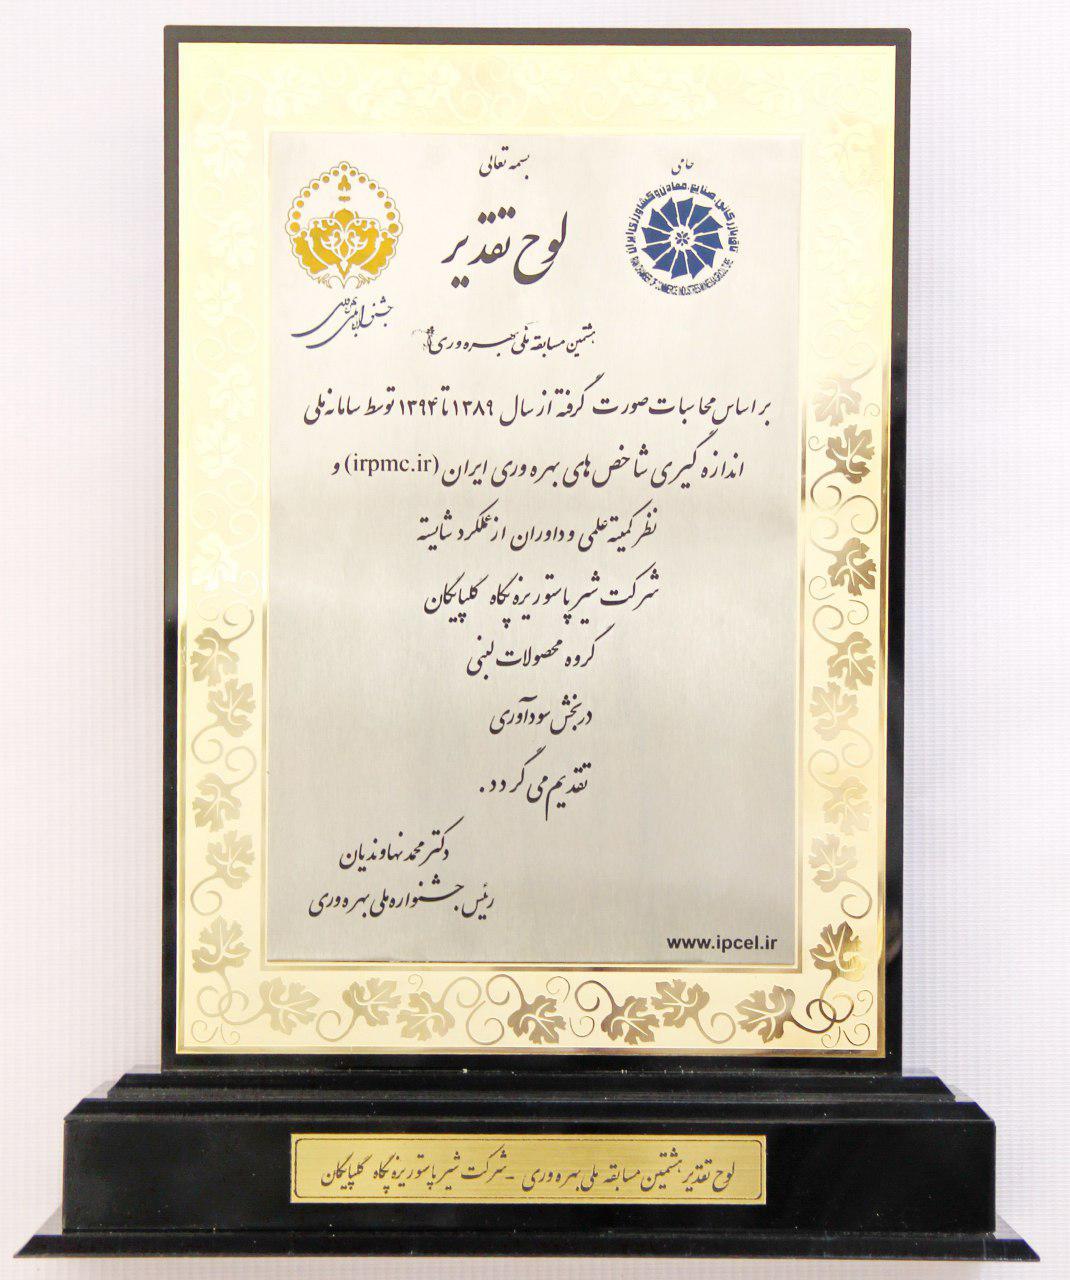 بسمه تعالی
حامی
اتاق بازرگانی، صنایع، معادن و کشاورزی ایران
IRAN CHAMBER OF COMMERCE INDUSTRIES MINES & AGRICULTURE
لوح تقدیر
هشتمین مسابقه ملی بهره وری
بر اساس محاسبات صورت گرفته از سال ۱۳۸۹ تا ۱۳۹۴ توسط سامانه ملی
اندازه گیری شاخص های بهره وری ایران (irpmc.ir) و
نظر کمیته علمی و داوران از عملکرد شایسته
شرکت شیر پاستوریزه پگاه گلپایگان
گروه محصولات لبنی
در بخش سودآوری
تقدیم می گردد.
دکتر محمد نهاوندیان
رئیس جشنواره ملی بهره وری
www.ipcel.ir
لوح تقدیر هشتمین مسابقه ملی بهره وری - شرکت شیر پاستوریزه پگاه گلپایگان